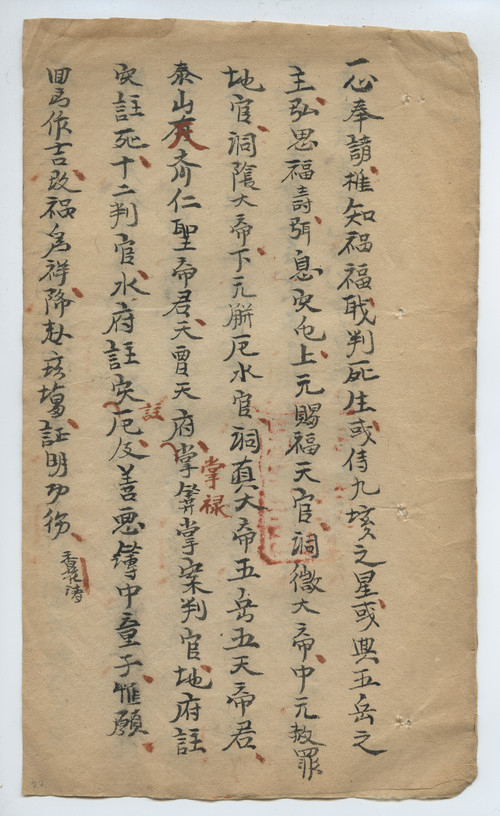 一心奉請権知禍福職判死生或侍九垓之星或典五岳之
主弘恩福壽弭息灾屯上元賜福天官洞微大帝中元赦罪
地官洞陰大帝下元解厄水官洞真大帝五岳五天帝君
泰山齐仁聖帝君天曹天府掌筭掌案判官地府註
掌禄
灾註死十二判官水府註灾厄及善悪簿中童子惟願
註
回为作吉改禍為祥降赴塲証明功徳
香花請